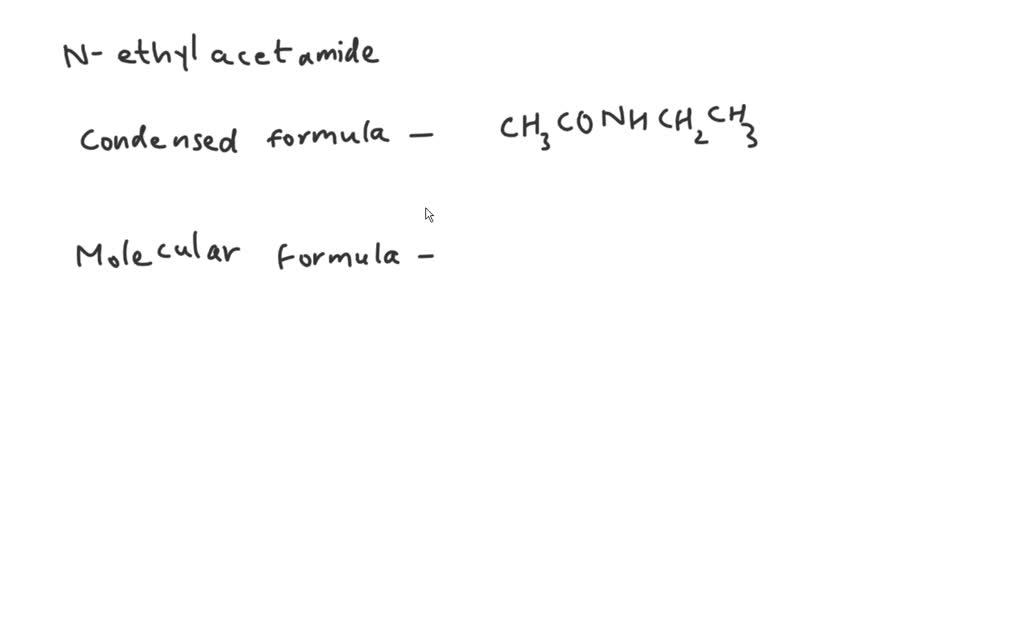 N- ethyl acetamide
Condensed formula - CH₃CONHCH₂CH₃
Molecular formula -